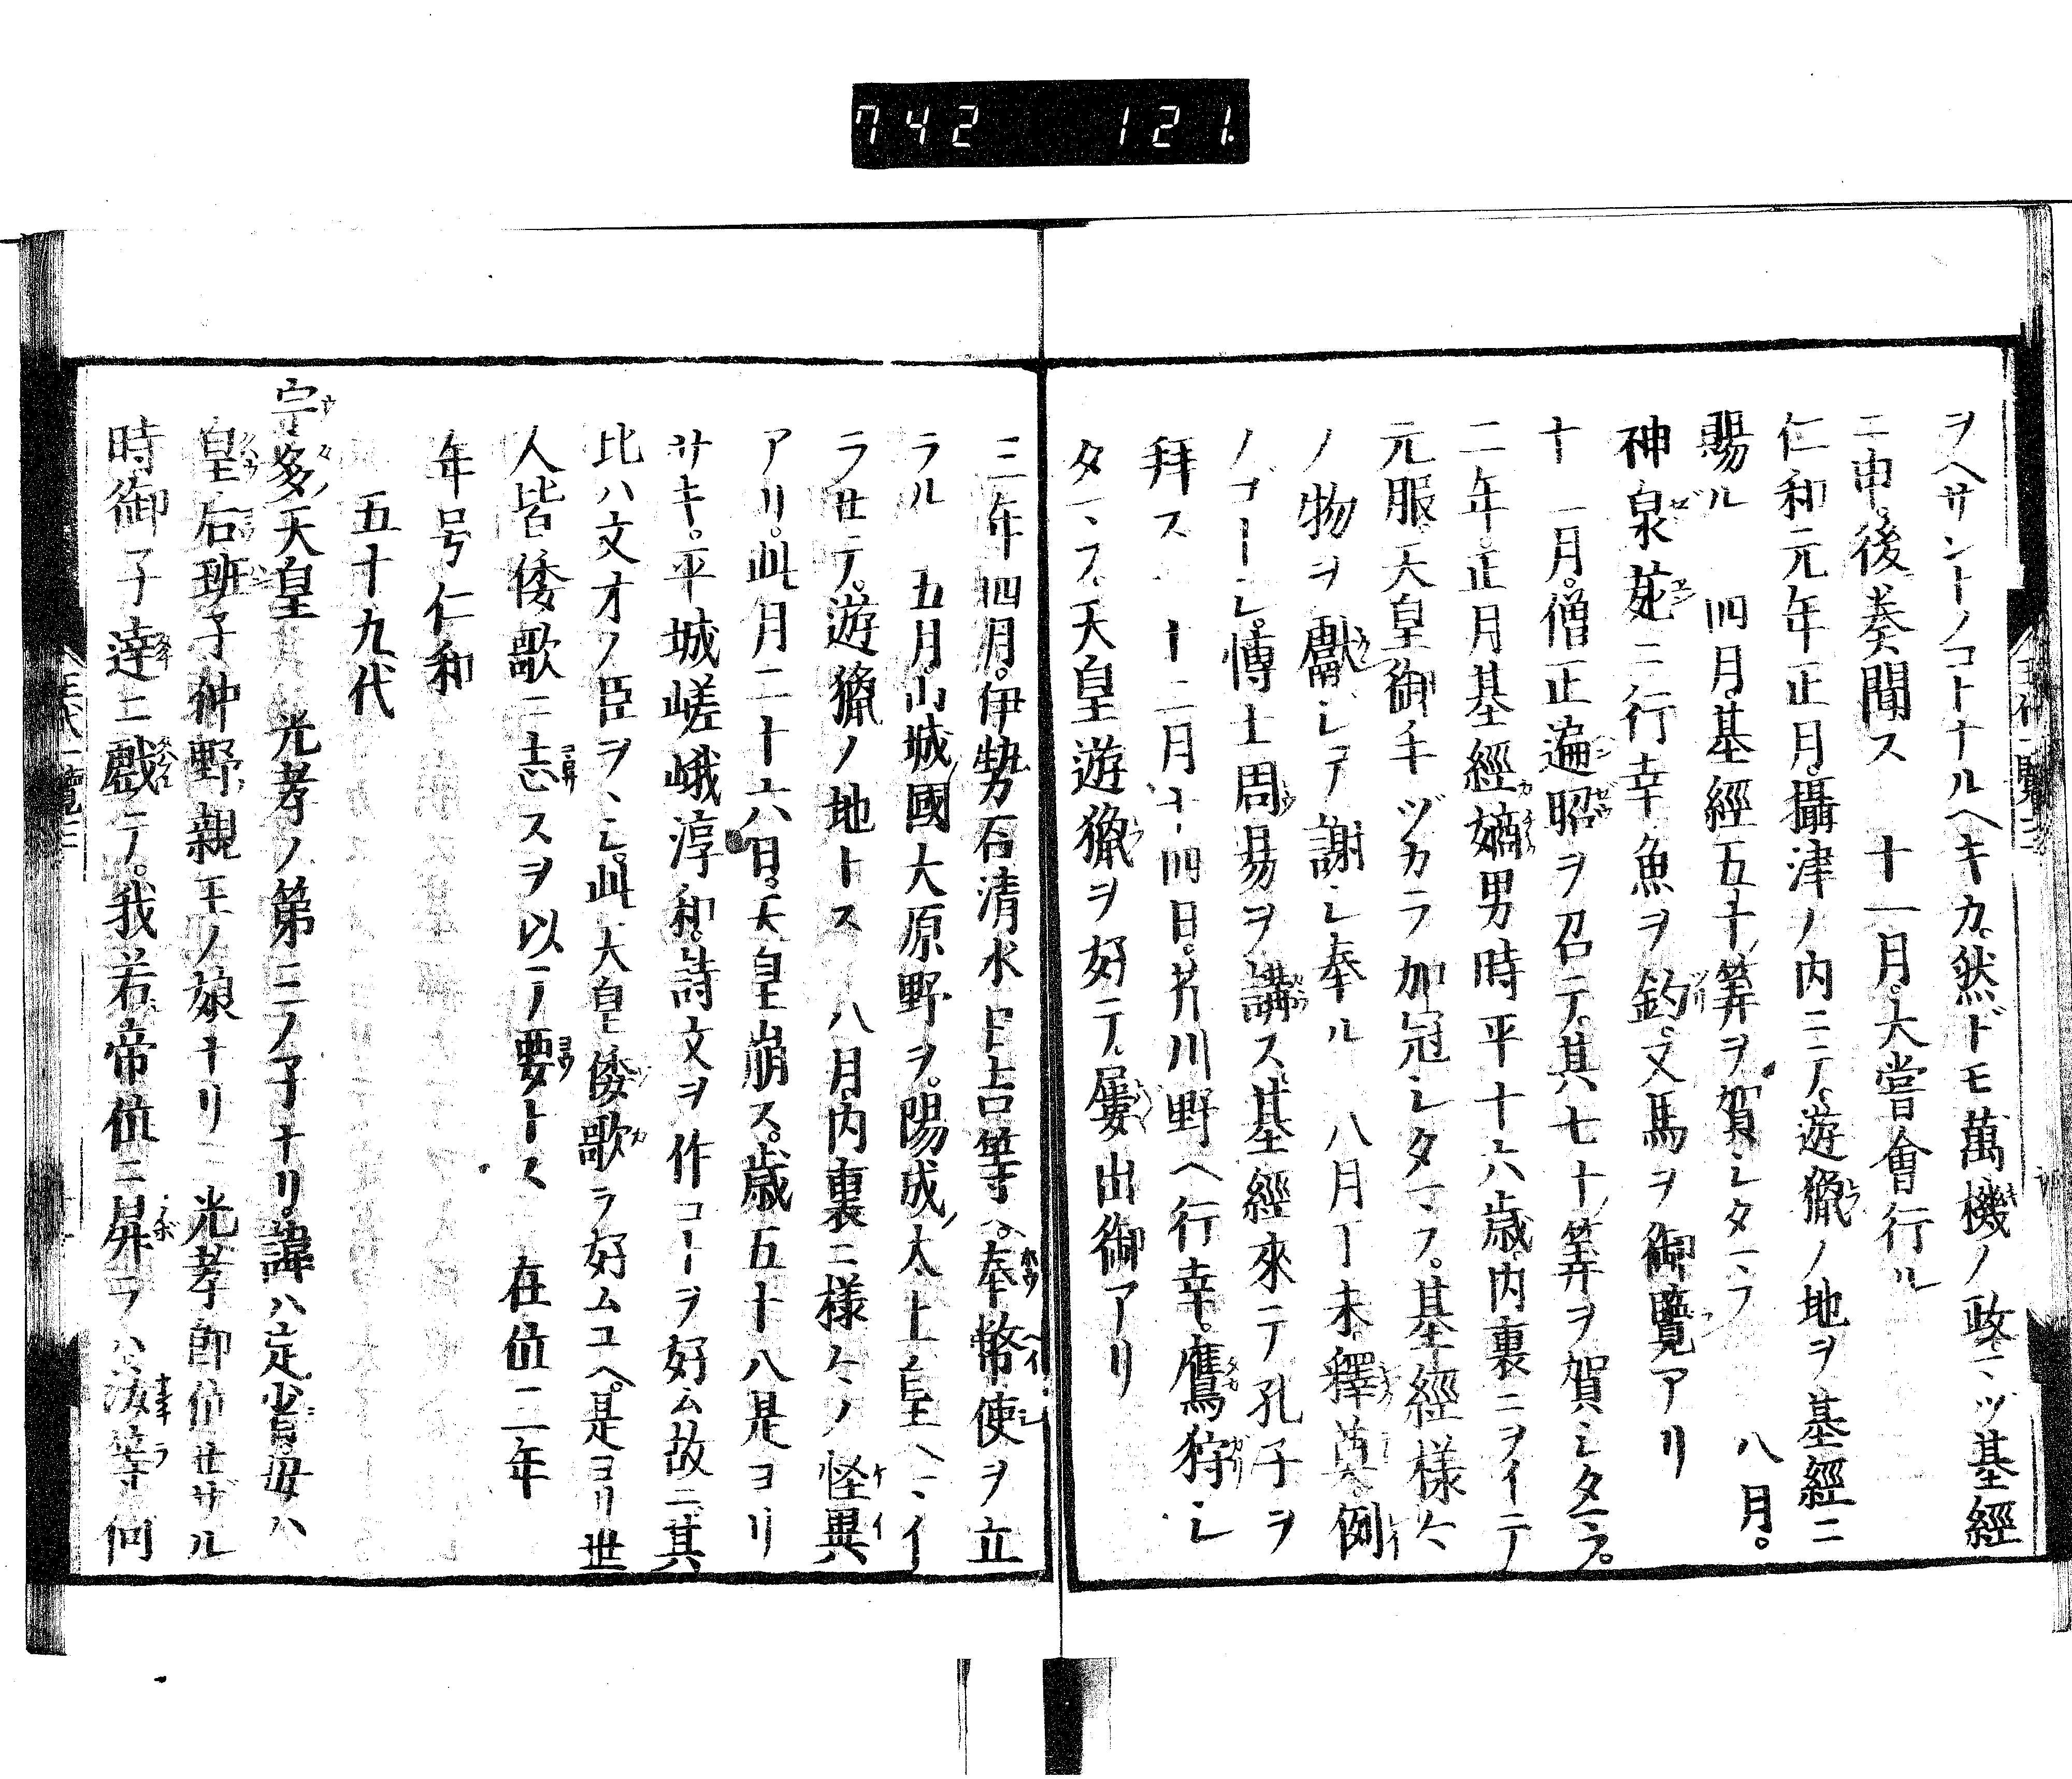 742 121.
ヲヘサントノコトナルヘキカ。然ドモ萬機ノ政。マヅ基經
ニ申。後奏聞ス 十一月。大嘗會行ル
仁和元年正月。攝津ノ内ニテ。遊獵ノ地ヲ基經ニ
賜ル 四月。基經五十ノ筭ヲ賀シタマフ 八月。
神泉苑ニ行幸。魚ヲ釣。又馬ヲ御覽アリ
十一月。僧正遍昭ヲ召テ。其七十ノ筭ヲ賀シタマフ。
二年。正月基經嫡男時平十六歳。内裏ニヲイテ
元服。天皇御手ヅカラ加冠シタマフ。基經様々
ノ物ヲ獻シテ謝シ奉ル 八月丁未。釋奠。例
ノゴトシ。博士周易ヲ講ス。基經來テ孔子ヲ
拜ス 十二月十四日。芹川野ヘ行幸。鷹狩シ
タマフ。天皇遊獵ヲ好テ。屢出御アリ
三年四月。伊勢石清水ト占等ヘ。奉幣使ヲ立
ラル 五月。山城國大原野ヲ。陽成ノ太上皇ヘマイ
ラセテ。遊獵ノ地トス 八月。内裏ニ様々ノ怪異
アリ。此月二十六日。天皇崩ス。歳五十八是ヨリ
サキ。平城嵯峨淳和。詩文ヲ作コトヲ好ム故ニ。其
比ハ文才ノ臣ヲヽシ。此天皇倭歌ヲ好ムユヘ。是ヨリ世
人皆倭歌ニ志スヲ以テ要トス 在位二年
年号仁和
五十九代
宇多天皇 光孝ノ第三ノ子ナリ諱ハ定省。母ハ
皇后班子仲野親王ノ娘ナリ 光孝即位セザル
時御子達ニ戯テ。我若帝位ニ昇ラハ汝等何